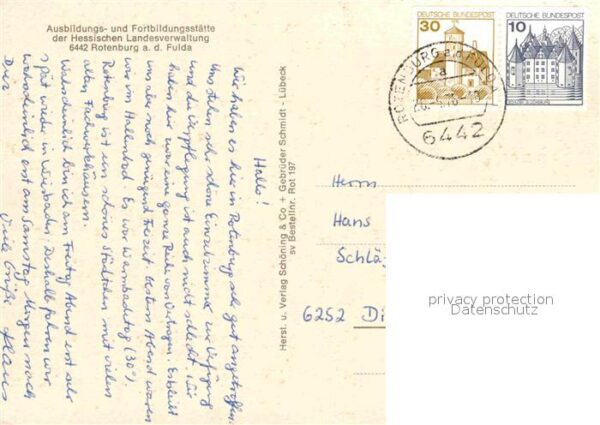 Ausbildungs- und Fortbildungsstätte
der Hessischen Landesverwaltung
6442 Rotenburg a. d. Fulda
DEUTSCHE BUNDESPOST
30
DEUTSCHE BUNDESPOST
10
ROTENBURG a.d. FULDA
6442
Hallo!
Wir haben es hier in Rotenburg sehr gut angetroffen.
Uns stehen sehr schöne Einzelzimmer zur Verfügung
und die Verpflegung ist auch nicht schlecht. Wir
haben hier zwar eine ganze Reihe von Vorlesungen. Es bleibt
uns aber noch genügend Freizeit. Gestern Abend waren
wir im Hallenbad. Es war Warmbadetag (30°).
Rotenburg ist ein schönes Städtchen mit vielen
alten Fachwerkhäusern.
Wahrscheinlich bin ich am Freitag Abend erst sehr
spät wieder in Wiesbaden. Deshalb fahren wir
wahrscheinlich erst am Samstag Morgen nach
Diez
Viele Grüße Klaus
Herst. u. Verlag Schöning & Co + Gebrüder Schmidt - Lübeck
sv Bestellnr. Rot 197
Herrn
Hans
Schlä
6252 Di
privacy protection
Datenschutz